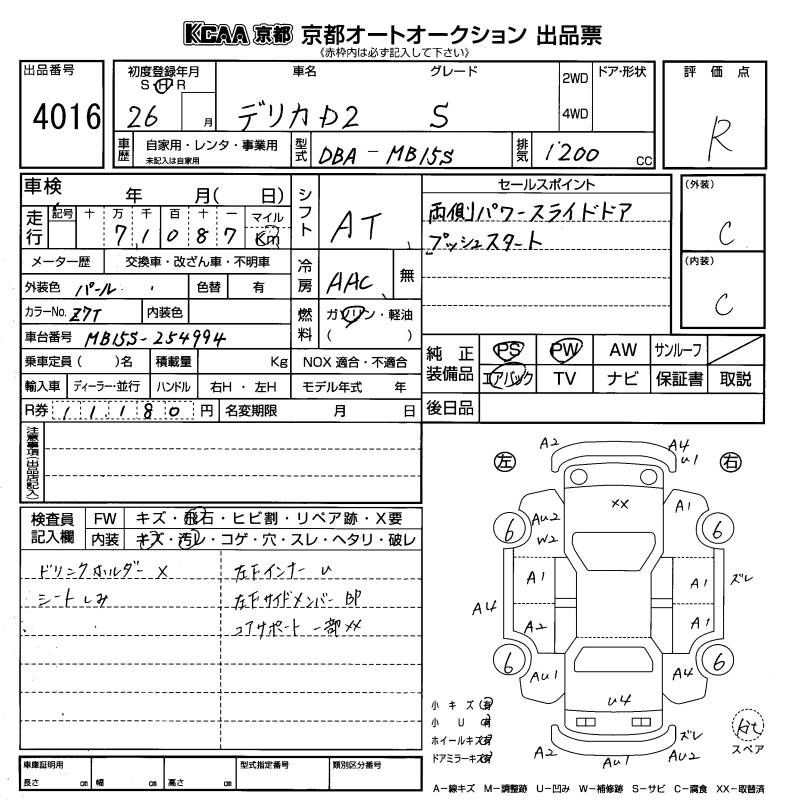 KCAA 京都 京都オートオークション 出品票
《赤枠内は必ず記入して下さい》
出品番号
4016
初度登録年月
S・H・R
26 月
車名
デリカ D2
グレード
S
2WD
4WD
ドア・形状
評価点
R
車歴
自家用・レンタ・事業用
未記入は自家用
型式
DBA-MB15S
排気
1200 cc
車検 年 月( 日)
走行
記号 十 万 千 百 十 一 マイル
7 1 0 8 7 Km
シフト
AT
メーター歴 交換車・改ざん車・不明車
外装色 パール
色替 有
カラーNo. Z7T
内装色
冷房
AAC 無
燃料
ガソリン・軽油
( )
車台番号 MB15S-254994
乗車定員( )名 積載量 Kg NOX 適合・不適合
輸入車 ディーラー・並行 ハンドル 右H・左H モデル年式 年
R券 11,180 円 名変期限 月 日
セールスポイント
両側パワースライドドア
プッシュスタート
(外装)
C
(内装)
C
純正装備品
PS PW AW サンルーフ
エアバック TV ナビ 保証書 取説
後日品
注意事項(出品店記入)
検査員記入欄
FW キズ・飛石・ヒビ割・リペア跡・X要
内装 キズ・汚レ・コゲ・穴・スレ・ヘタリ・破レ
ドリンクホルダー X
シートしみ
左下インナー U
左下サイドメンバー BP
コアサポート 一部XX
左
右
A2
A4
U1
XX
AU2
W2
A1
6
6
A1
A1
ズレ
A4
A2
A1
6
6
AU1
A4
U4
A2
AU1
ズレ
AU2
小キズ(有)
小U(有)
ホイールキズ(有)
ドアミラーキズ(有)
kit
スペア
車庫証明用
長さ cm 幅 cm 高さ cm
型式指定番号
類別区分番号
A-線キズ M-調整跡 U-凹み W-補修跡 S-サビ C-腐食 XX-取替済